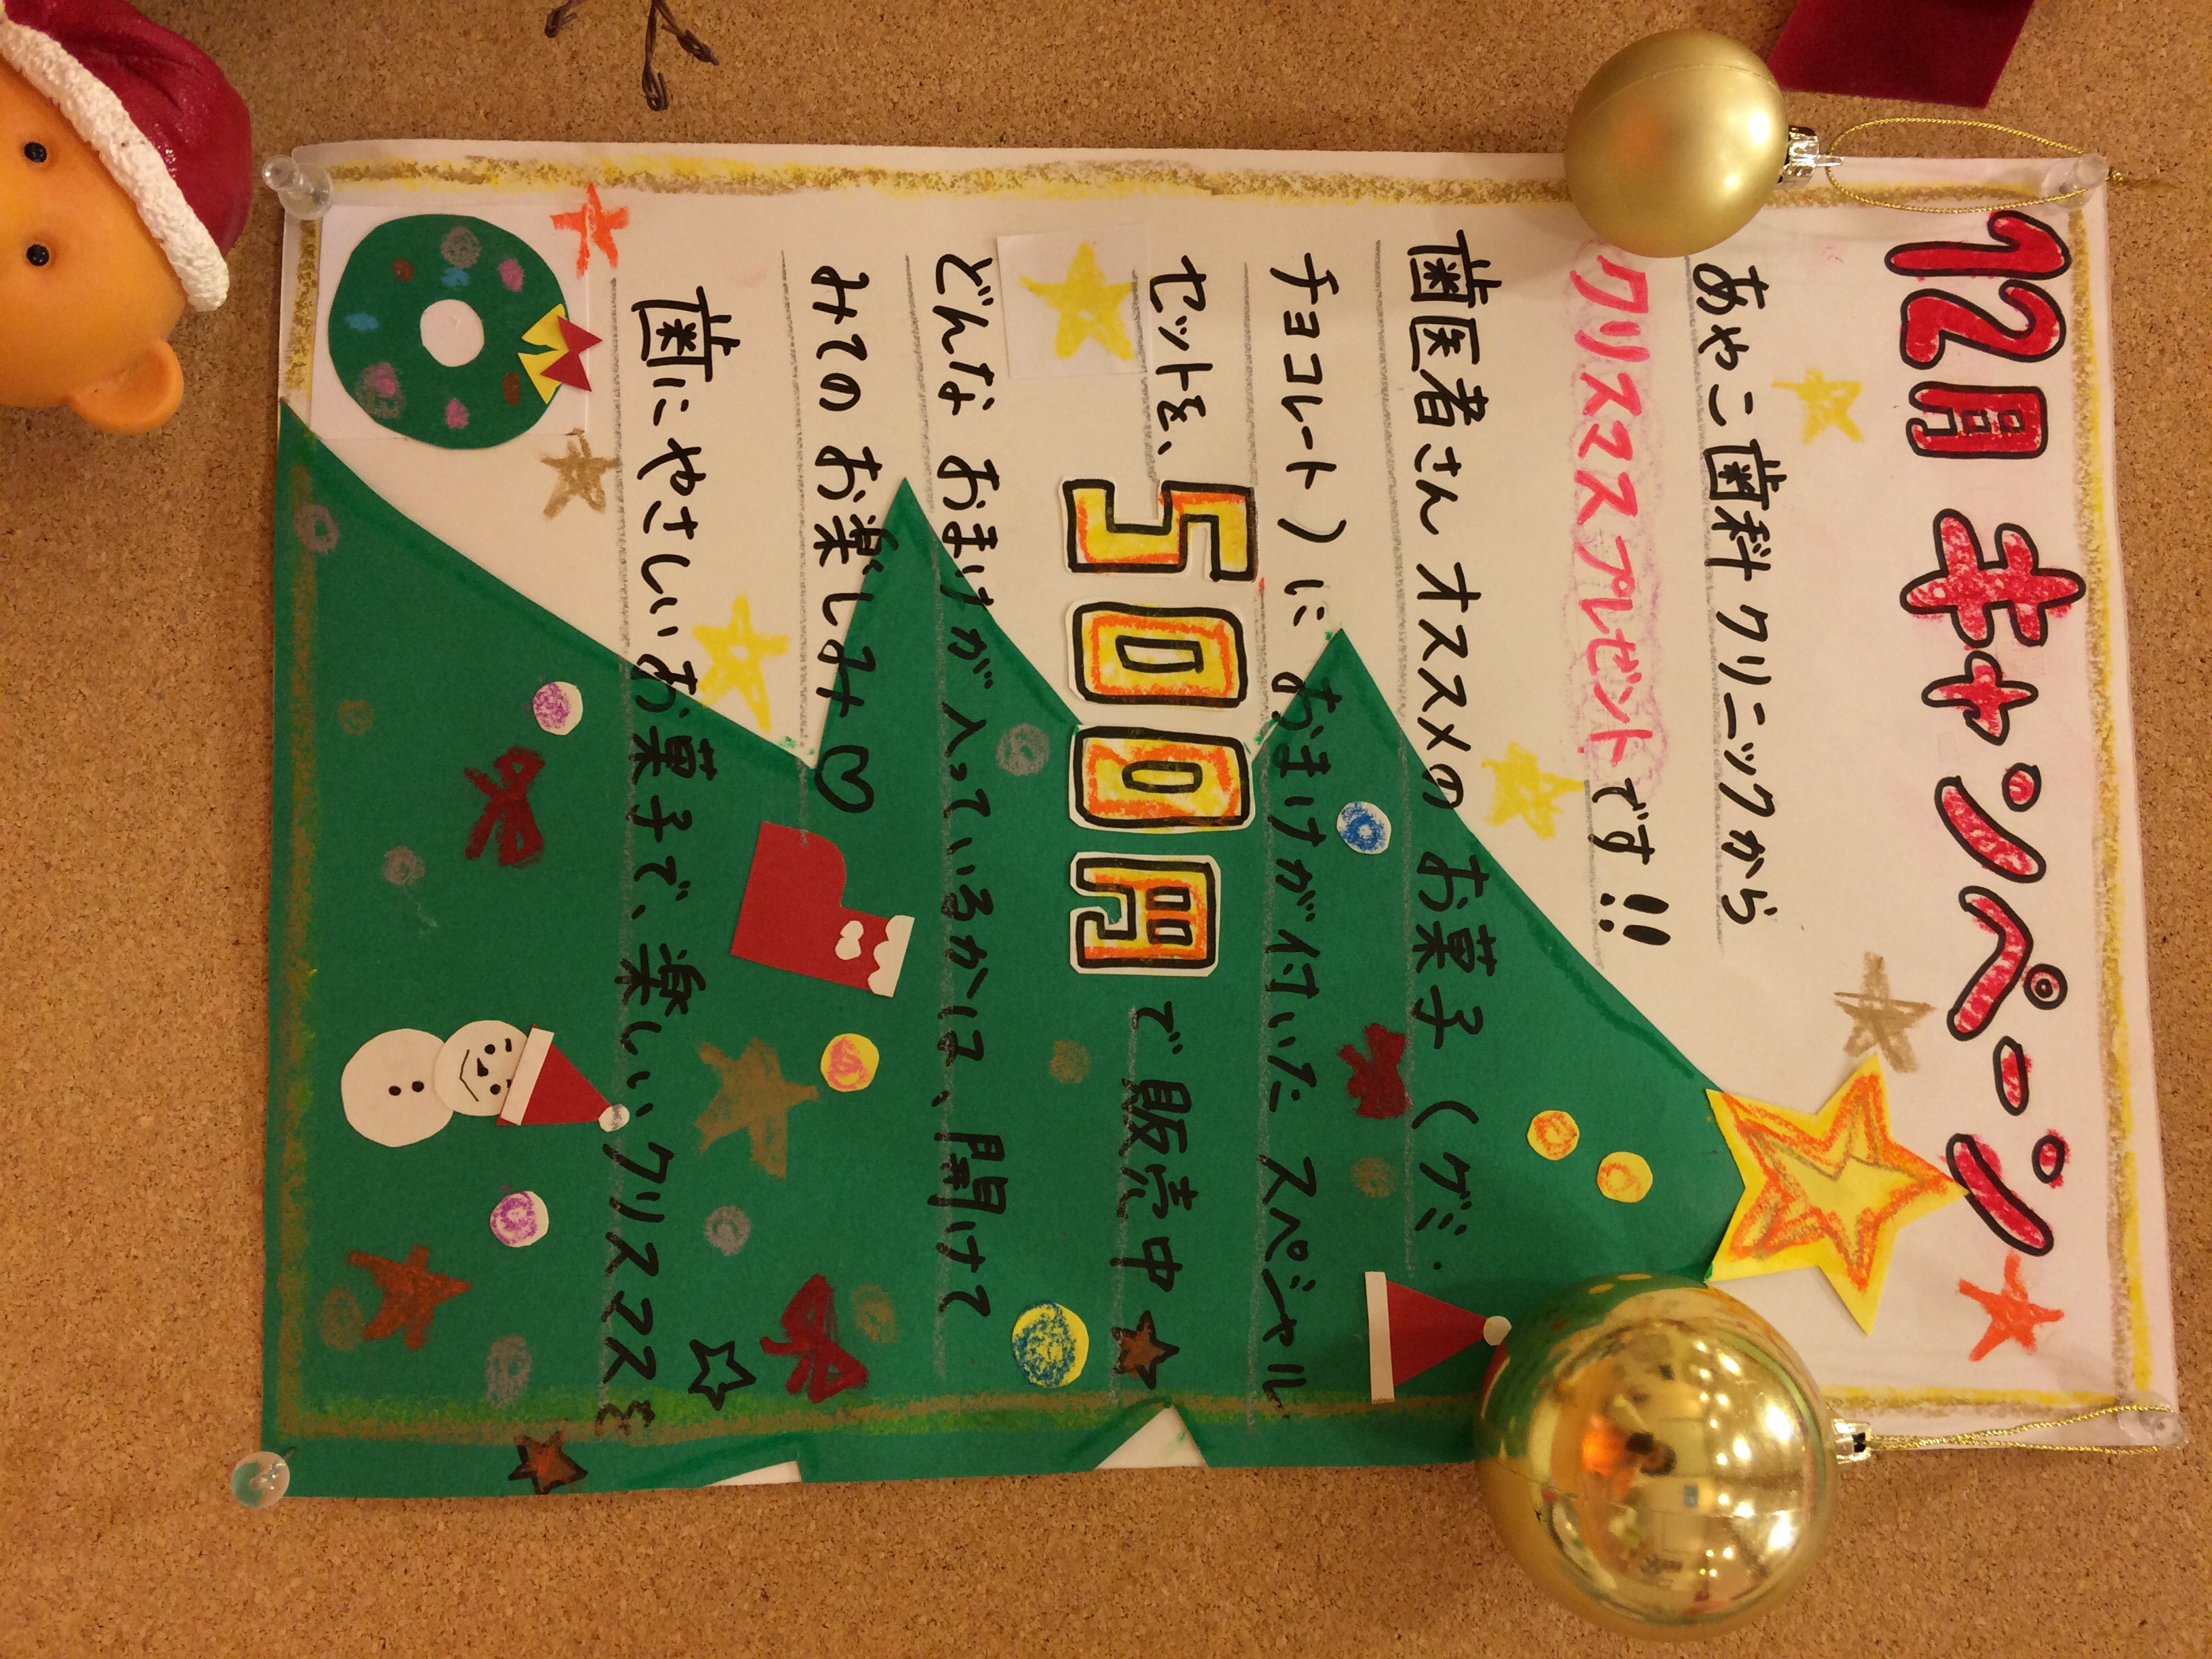 12月 キャンペーン
あやこ歯科クリニックから
クリスマスプレゼントです!!
歯医者さんオススメのお菓子（グミ・
チョコレート）におまけが付いたスペシャル
セットを、500円で販売中★
どんなおまけが入っているかは、開けて
みてのお楽しみ♡
歯にやさしいお菓子で、楽しいクリスマスを☆